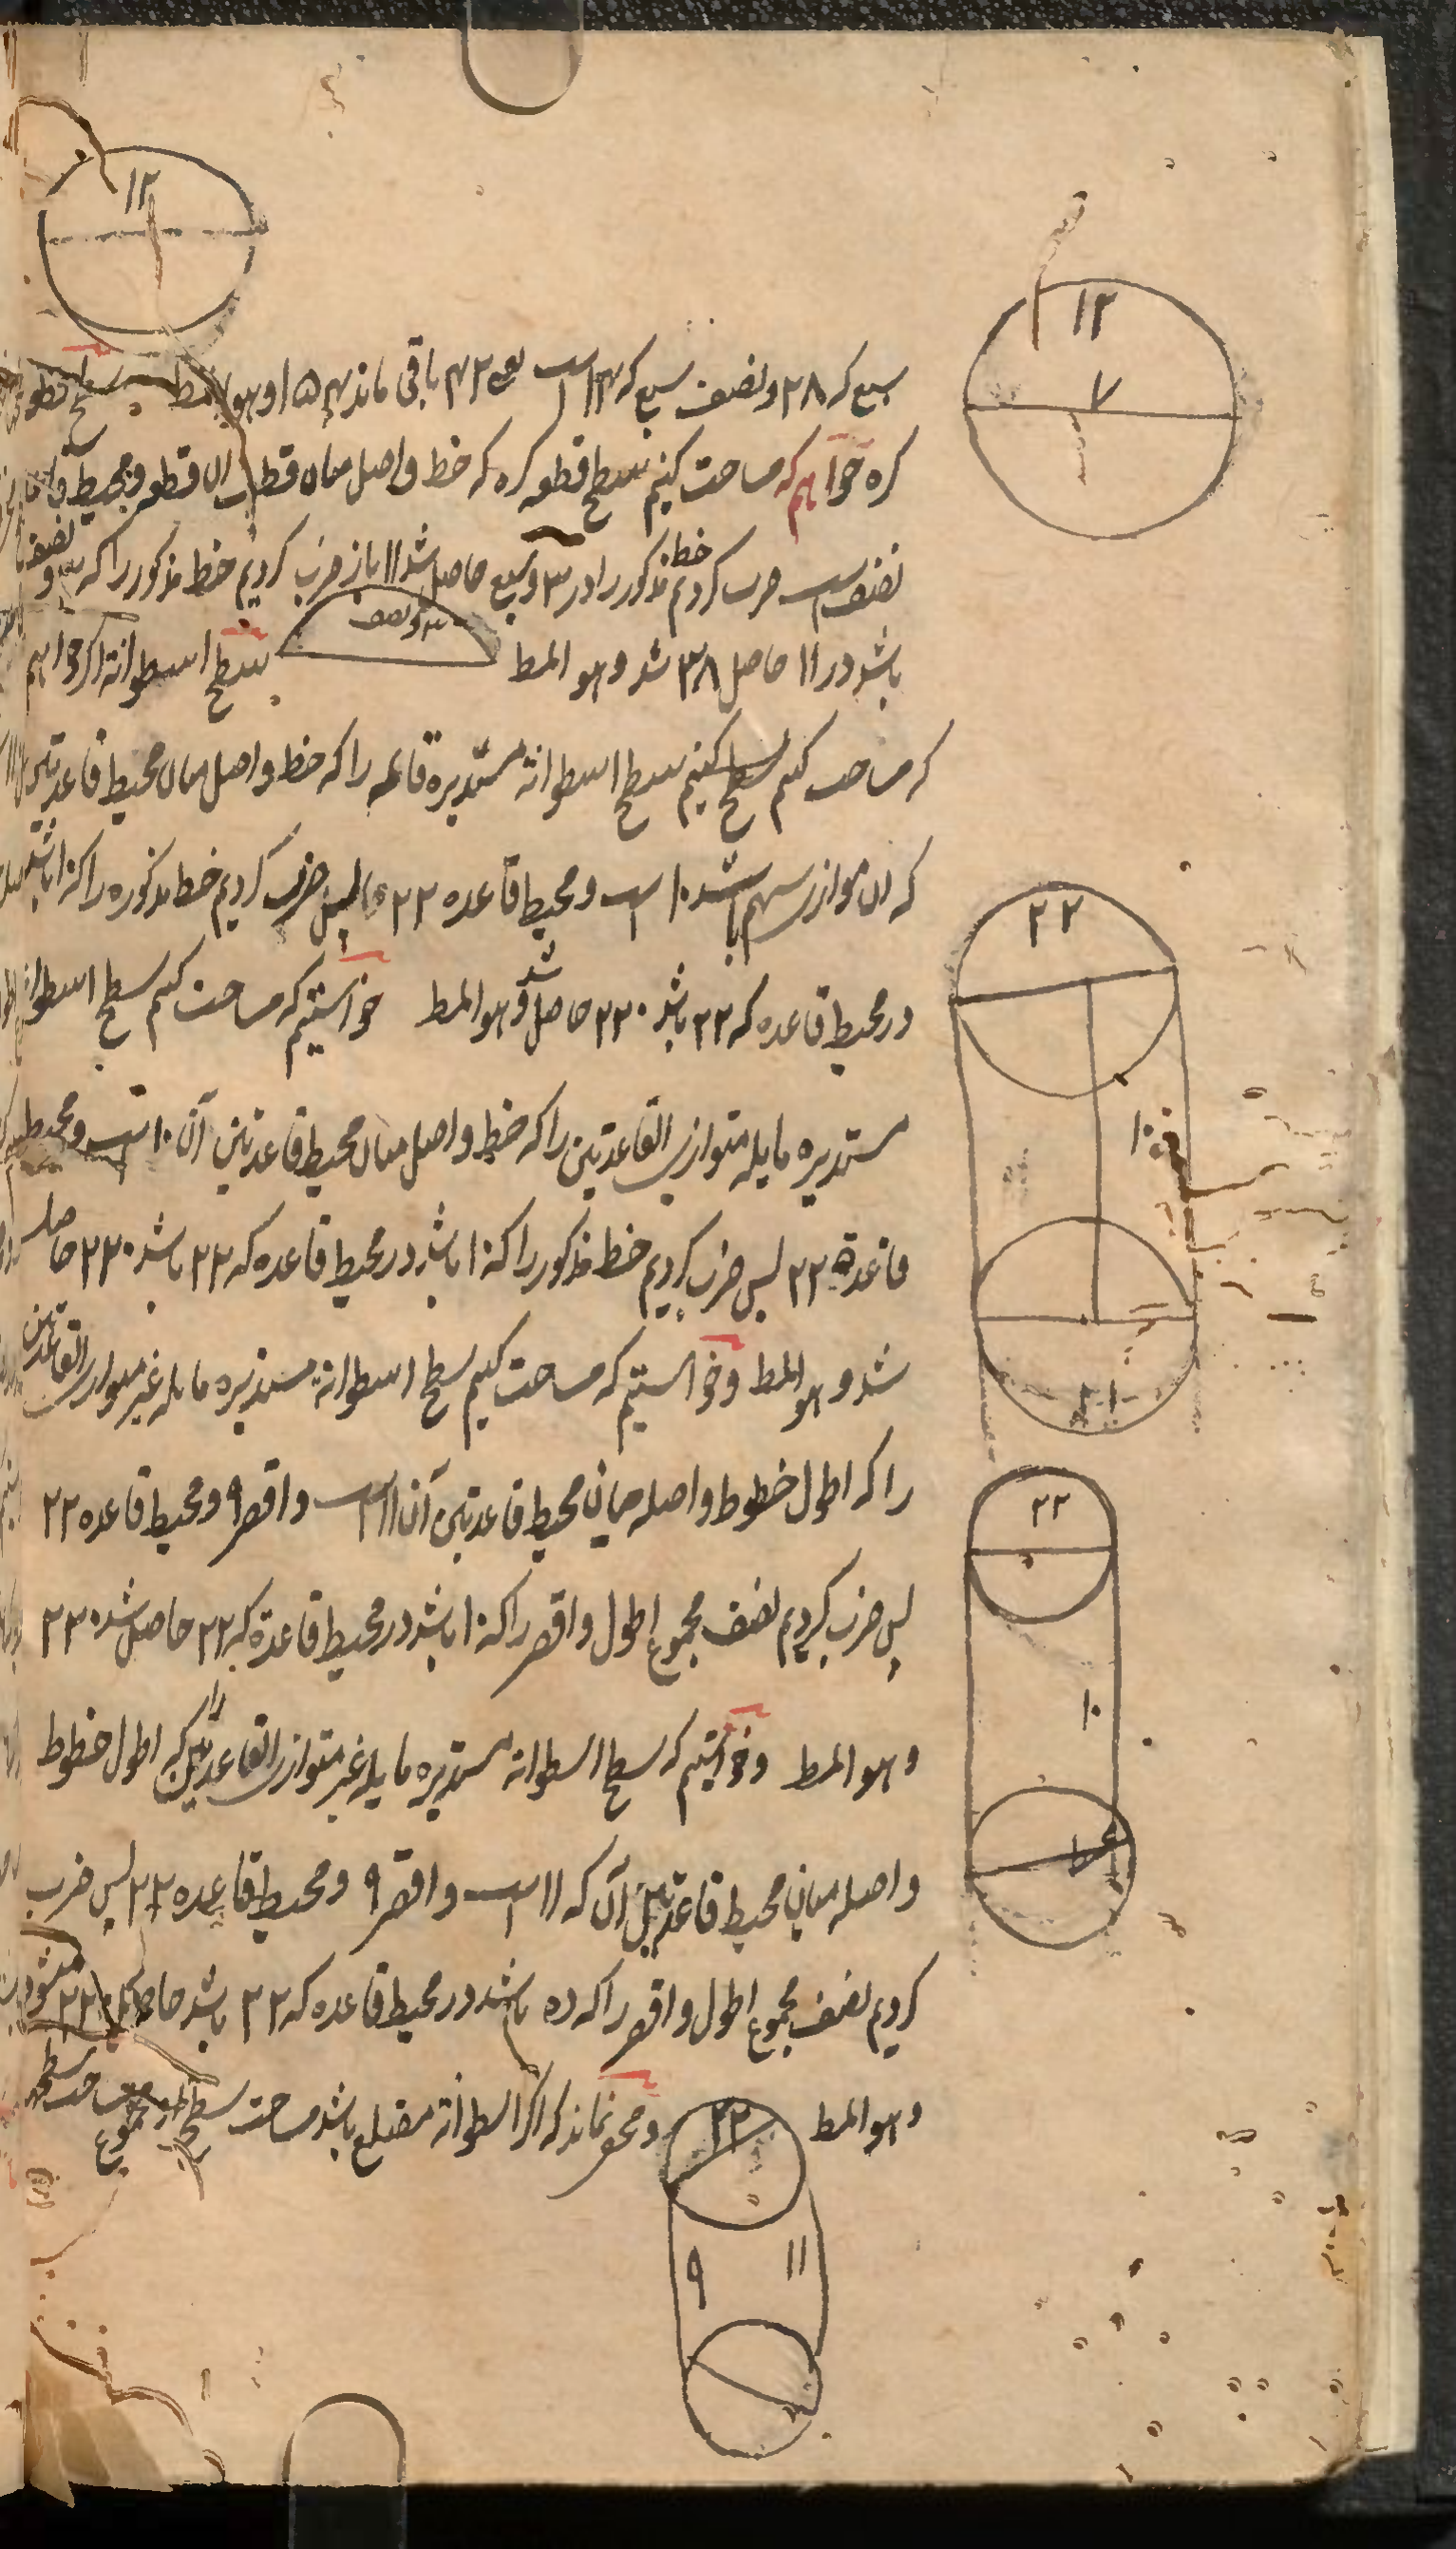 ۱۲
۱۲
۷
سبع که ۲۸ و نصف سبع که ۱۴ است یعنی ۴۲ باقی ماند ۱۵۴ و هو المط سطح قطعه
کره خواهم که مساحت کنیم سطح قطعه کره که خط واصل میان قطب آن قطعه و محیط قاعده
نصف است ضرب کردیم خط مذکور را در ۳ و سبع حاصل شد ۱۱ باز ضرب کردیم خط مذکور را که ۳ و نصف
باشد در ۱۱ حاصل ۳۸ شد و هو المط ۳ و نصف سطح اسطوانة اگر خواهم
که مساحت کنیم سطح کنیم سطح اسطوانه مستدیره قائمه را که خط واصل میان محیط قاعدتین
که آن موازی سهم باشد ۱۰ است و محیط قاعده ۲۲ پس ضرب کردیم خط مذکوره را که ۱۰ باشد
در محیط قاعده که ۲۲ باشد ۲۲۰ حاصل شد و هو المط خواستیم که مساحت کنیم سطح اسطوانه
مستدیره مایله متوازی القاعدتین را که خط واصل میان محیط قاعدتین آن ۱۰ است و محیط
قاعدة ۲۲ پس ضرب کردیم خط مذکور را که ۱۰ باشد در محیط قاعده که ۲۲ باشد ۲۲۰ حاصل
شد و هو المط و خواستیم که مساحت کنیم سطح اسطوانة مستدیره مایله غیر متوازی القاعدتین
را که اطول خطوط واصله میان محیط قاعدتین آن ۱۱ است و اقصر ۹ و محیط قاعده ۲۲
پس ضرب کردیم نصف مجموع اطول و اقصر را که ۱۰ باشد در محیط قاعدة که ۲۲ حاصل شد ۲۲۰
و هو المط و خواستیم که سطح اسطوانه مستدیره مایله غیر متوازی القاعدتین را که اطول خطوط
واصله میان محیط قاعدتین آن که ۱۱ است و اقصر ۹ و محیط قاعده ۲۲ پس ضرب
کردیم نصف مجموع اطول و اقصر را که ده باشد در محیط قاعده که ۲۲ باشد حاصل ۲۲۰ میشود
و هو المط و مخفی نماند که اگر اسطوانة مضلع باشد مساحت سطح مجموع مساحت سطوح
۲۲
۱۰
۲۲
۱۰
۲۲
۹
۱۱